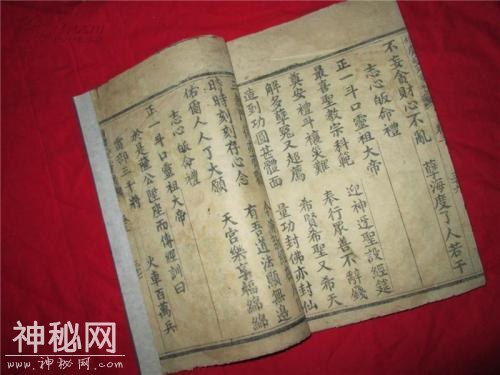 不妄貪財心不亂 孽海度了人若干
志心皈命禮
正一斗口靈祖大帝
最喜聖教宗科範 迎神近聖設經筵
奠安禮斗禳災難 奉行衆善不辭錢
解名孽冤又超薦 希賢希聖又希天
造到功圓甚體面 量功封佛亦封仙
時時刻刻存心念 有吾道法顯無邊
佑爾人人了大願 天宮樂享福綿綿
志心皈命禮
正一斗口靈祖大帝
於是薩公陞座而傳迎訓曰
雷部三千將 火車百萬兵
神秘网
www.神秘网.com